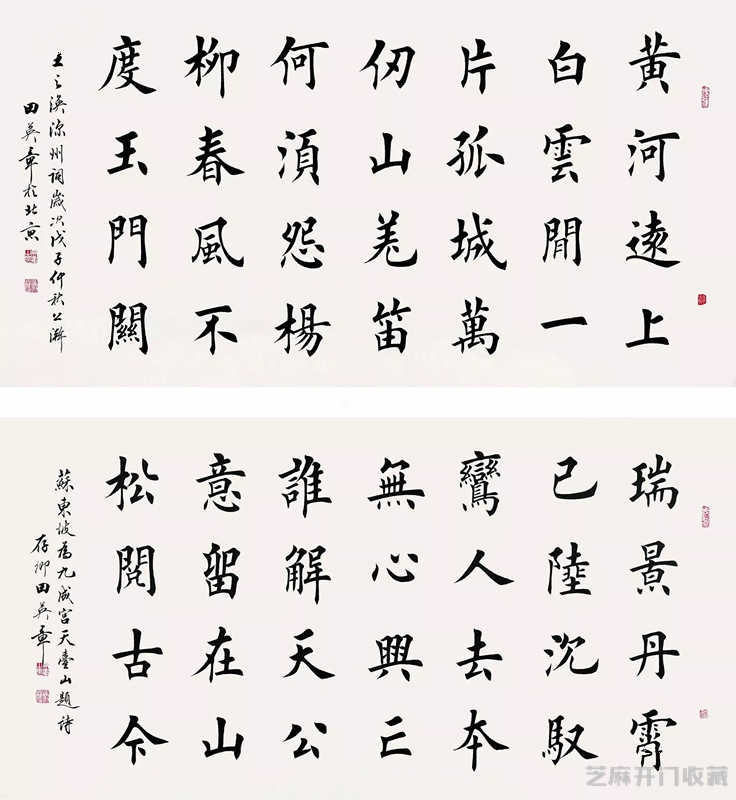 黃河遠上
白雲閒一
片孤城萬
仞山羌笛
何須怨楊
柳春風不
度玉門關
王之渙涼州詞歲次戊子仲秋
田英章於北京
瑞景丹霄
已陸沉馭
鸞人去本
無心興亡
誰解天公
意留在山
松閱古今
蘇東坡為九成宮天臺山題詩
存卿田英章
芝麻开门收藏